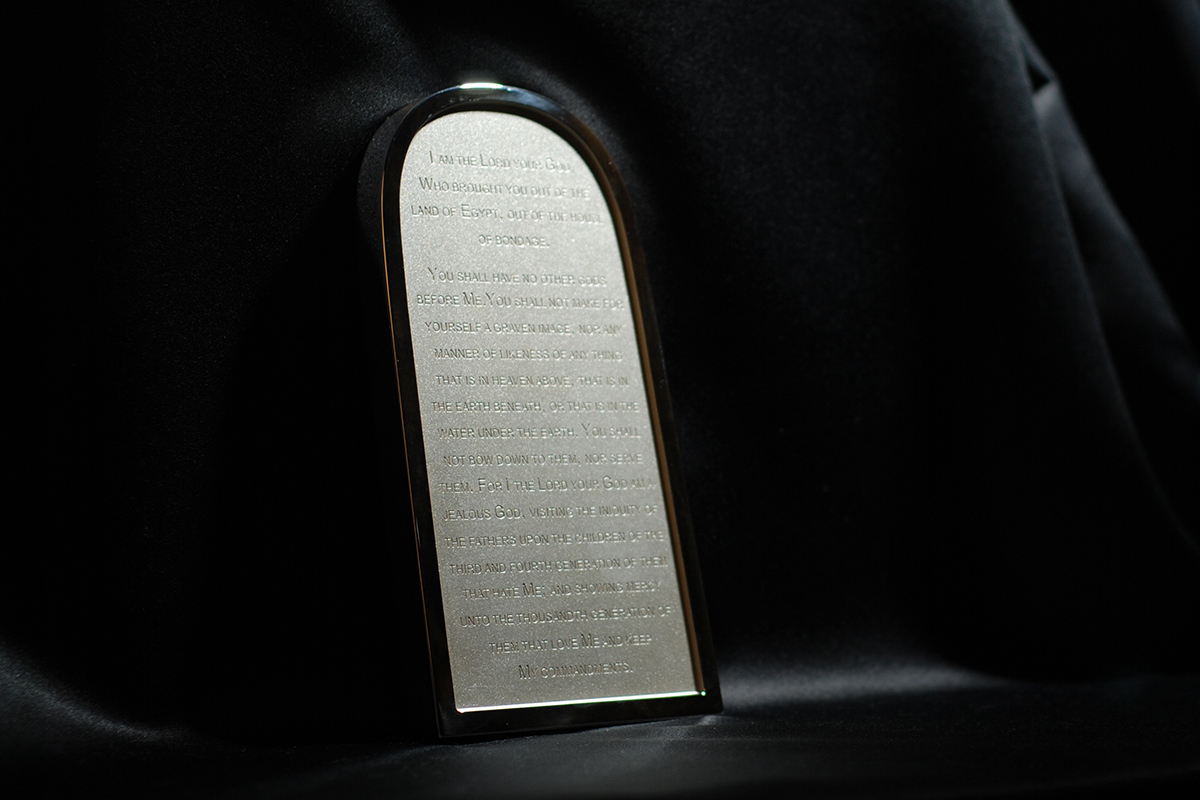 I AM THE LORD YOUR GOD
WHO BROUGHT YOU OUT OF THE
LAND OF EGYPT, OUT OF THE HOUSE
OF BONDAGE.
YOU SHALL HAVE NO OTHER GODS
BEFORE ME.YOU SHALL NOT MAKE FOR
YOURSELF A GRAVEN IMAGE, NOR ANY
MANNER OF LIKENESS OF ANY THING
THAT IS IN HEAVEN ABOVE, THAT IS IN
THE EARTH BENEATH, OR THAT IS IN THE
WATER UNDER THE EARTH. YOU SHALL
NOT BOW DOWN TO THEM, NOR SERVE
THEM. FOR I THE LORD YOUR GOD AM A
JEALOUS GOD, VISITING THE INIQUITY OF
THE FATHERS UPON THE CHILDREN OF THE
THIRD AND FOURTH GENERATION OF THEM
THAT HATE ME; AND SHOWING MERCY
UNTO THE THOUSANDTH GENERATION OF
THEM THAT LOVE ME AND KEEP
MY COMMANDMENTS.